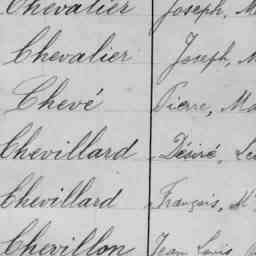 Chevalier Joseph, M
Chevalier Joseph, M
Chevé Pierre, Ma
Chevillard Désiré, Le
Chevillard François, M
Chevillon Jean Louis